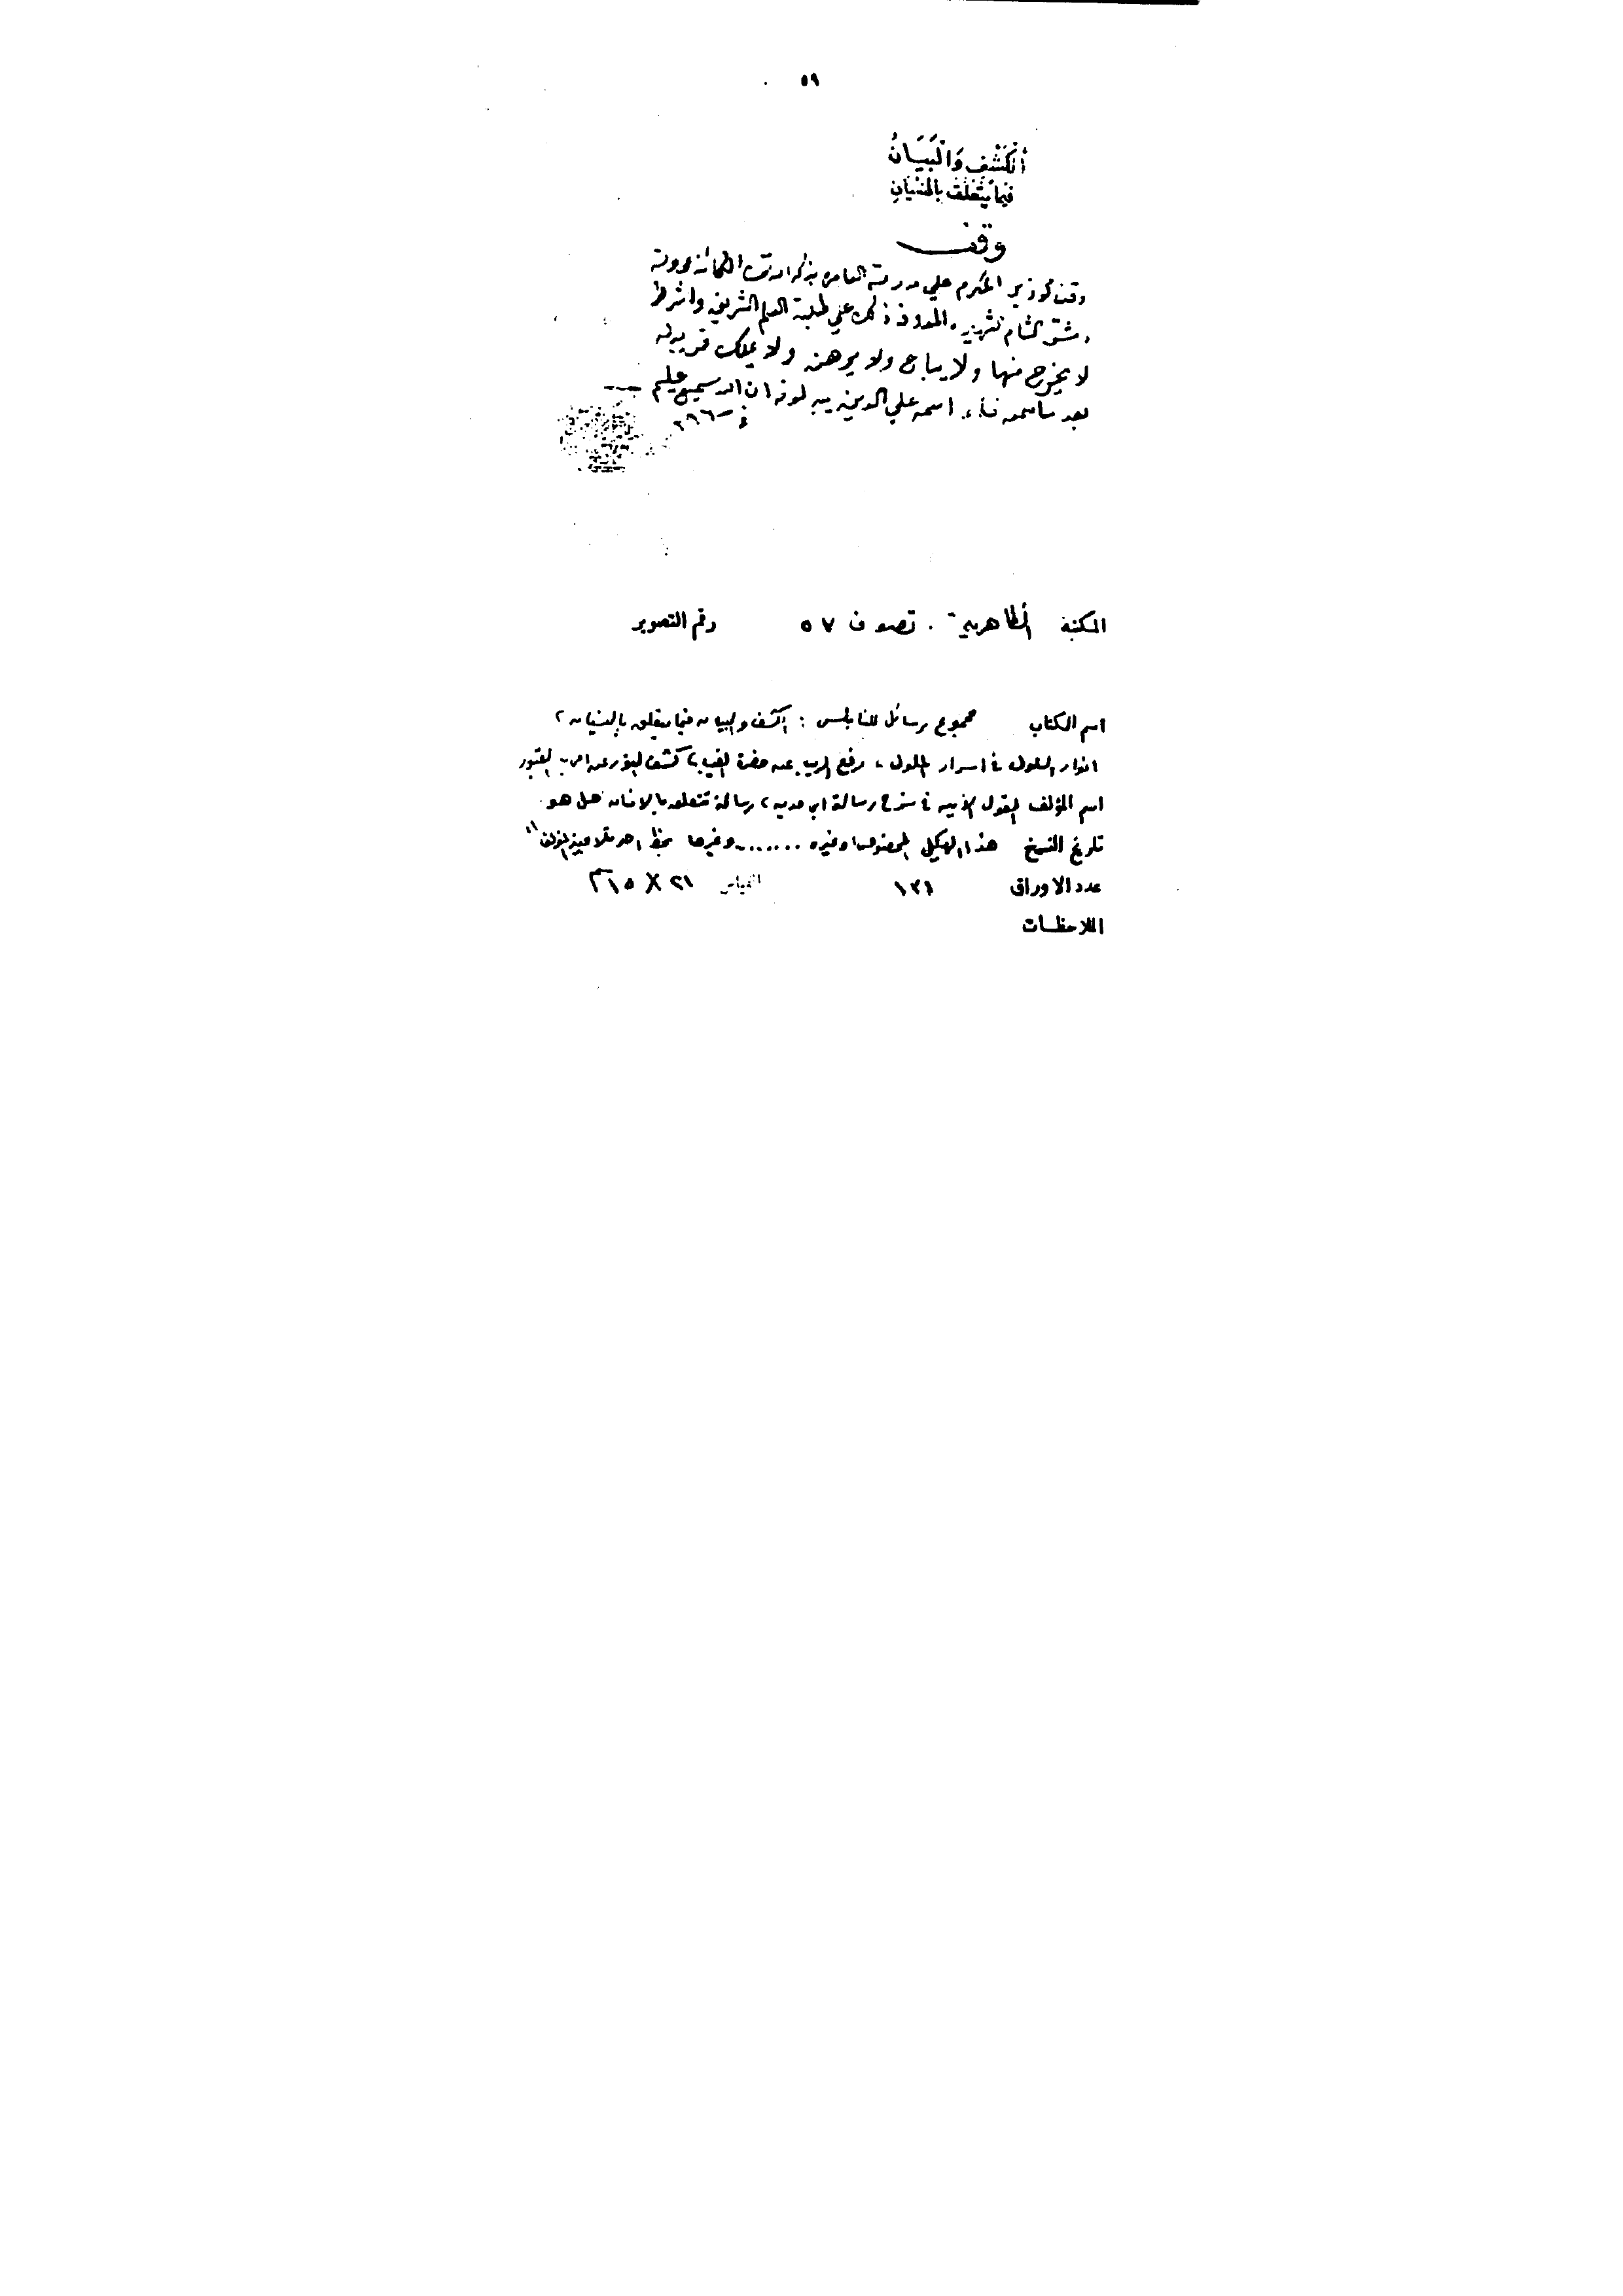 ٥٩
الْكَشْفُ وَالْبَيَانُ
فيما يتعلق بالنسيان
وقف
وقف الوزير المكرم علي مدرسته العامرة بذكر الله تعالى محروسة
دمشق الشام الشهيرة المعروف ذلك علي طلبة العلم الشريف واشرط
لا يخرج منها ولا يباع ولا يرهن ولا يملك فمن بدله
بعد ما سمعه فانما اسمه علي الذين يبدلونه ان الله سميع عليم
المكتبة الظاهرية . تصوف ٥٧ رقم التصوير
اسم الكتاب مجموع رسائل للنابلسي : الكشف والبيان فيما يتعلق بالنسيان ،
انوار السلوك في اسرار الملوك ، رفع الريب عن حضرة الغيب ، كشف النور عن اصحاب القبور
اسم المؤلف القول الابين في شرح رسالة ابي مدين ، رسالة تتعلق بالانسان هل هو
تاريخ النسخ هذا الهيكل المخصوص او غيره ....... وغيرها بخط احد تلاميذ المؤلف
عدد الاوراق ١٣١ القياس ٢١ X ١٥ سم
الملاحظات